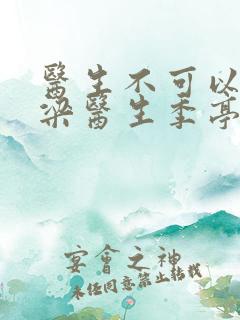 醫生不可以
梁醫生季亭
宴會之神
未经同意禁止转载